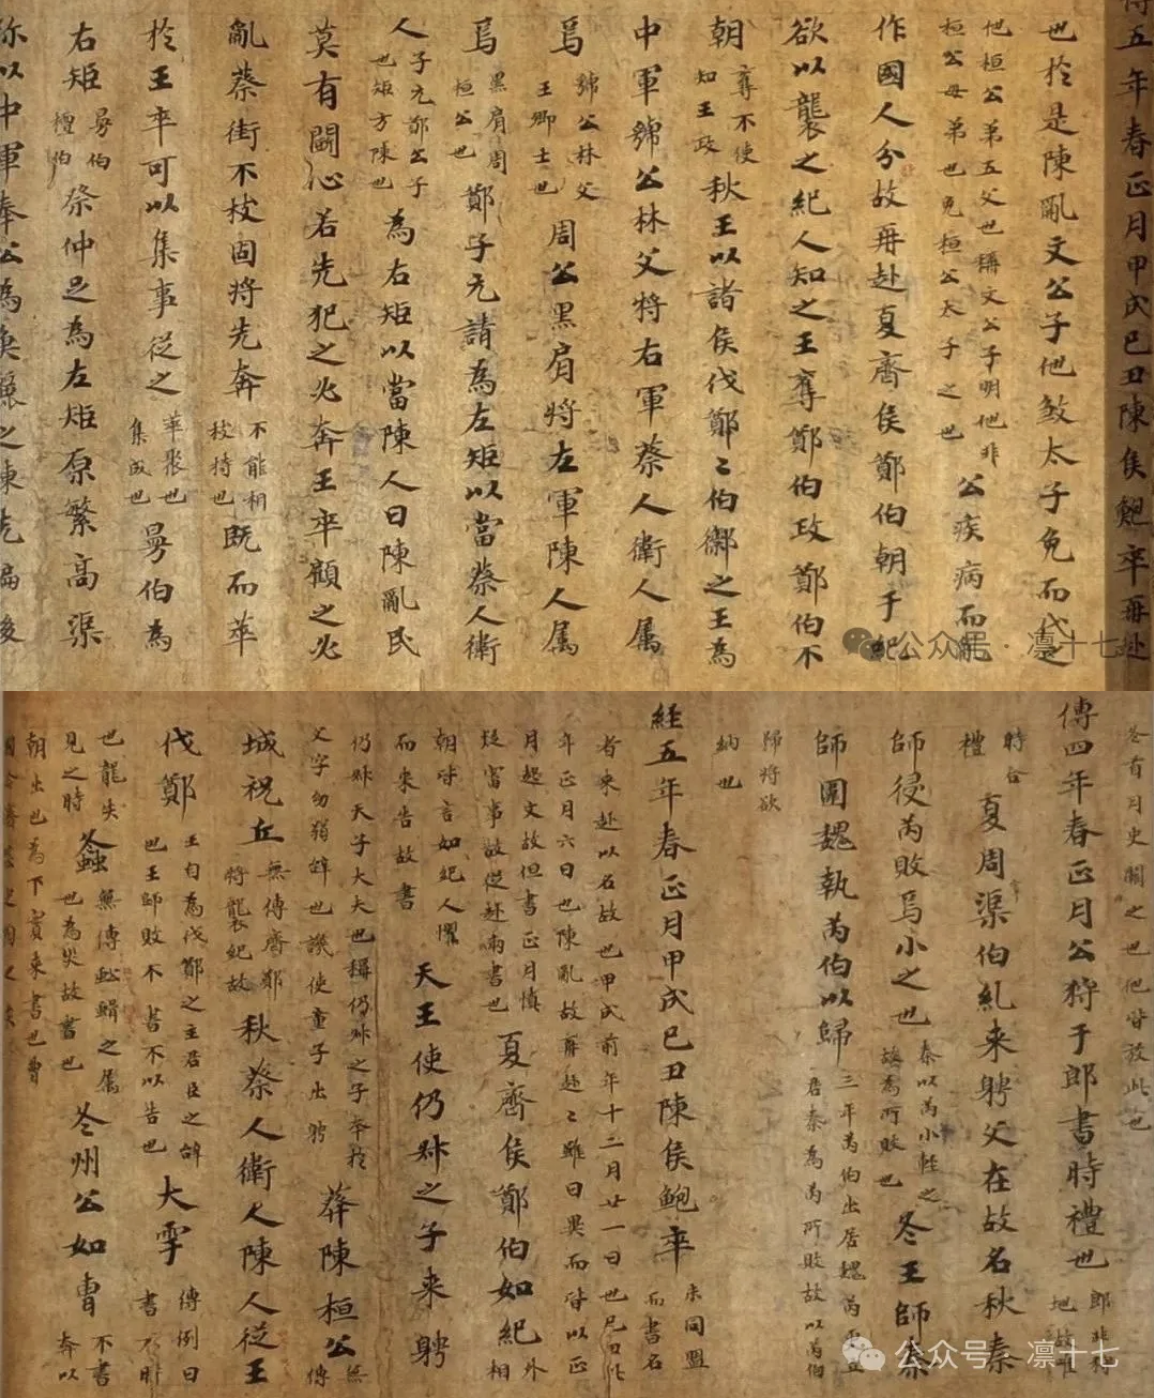 傳五年春正月甲戌己丑陳侯鮑卒再赴
也於是陳亂文公子他煞太子免而代之
他桓公弟五父也稱文公子明他非桓公母弟也免桓公太子之也公疾病而亂
作國人分故再赴夏齊侯鄭伯朝于紀
欲以襲之紀人知之王奪鄭伯政鄭伯不
朝奪不使知王政秋王以諸侯伐鄭〻伯禦之王為
中軍虢公林父將右軍蔡人衛人属
焉虢公林父王卿士也周公黑肩將左軍陳人属
焉黑肩周桓公也鄭子元請為左矩以當蔡人衛
人子元鄭公子也矩方陳也為右矩以當陳人曰陳亂民
莫有鬪心若先犯之必奔王卒顧之必
亂蔡衛不枝固將先奔不能相枝持也既而萃
於王卒可以集事従之萃聚也集成也曼伯為
右矩曼伯檀伯祭仲足為左矩原繁高渠
弥以中軍奉公為魚麗之陳先偏後
公众号 · 凛十七
冬首月史闕之也他皆放此也
傳四年春正月公狩于郎書時禮也郎非狩地故唯
時合禮夏周渠伯糺来聘父在故名秋秦
師侵芮敗焉小之也秦以芮小輕之故為所敗也冬王師秦
師圍魏執芮伯以歸三年芮伯出居魏芮更立君秦為芮所敗故以芮伯
歸將欲納也
経五年春正月甲戌己丑陳侯鮑卒未同盟而書名
者来赴以名故也甲戌前年十二月廿一日也己丑此年正月六日也陳亂故再赴〻雖日異而皆以正
月起文故但書正月慎疑審事故從赴兩書也夏齊侯鄭伯如紀外相
朝皆言如紀人懼而来告故書天王使仍叔之子来聘
仍叔天子大夫也稱仍叔之子本於父字幼弱辝也譏使童子出聘葬陳桓公無傳
城祝丘無傳齊鄭將襲紀故秋蔡人衛人陳人従王
伐鄭王自為伐鄭之主君臣之辝也王師敗不書不以告也大雩傳例曰書不時
也龍失見之時螽無傳蚣蝑之属也為災故書也冬州公如曹不書奔以
朝出也為下寔来書也曹
公众号 · 凛十七